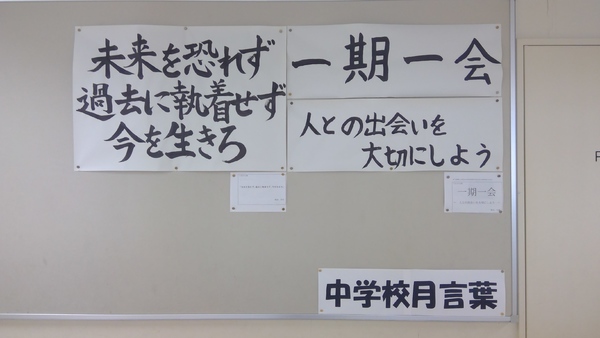 未来を恐れず
過去に執着せず
今を生きろ
一期一会
人との出会いを
大切にしよう
一期一会
中学校月言葉